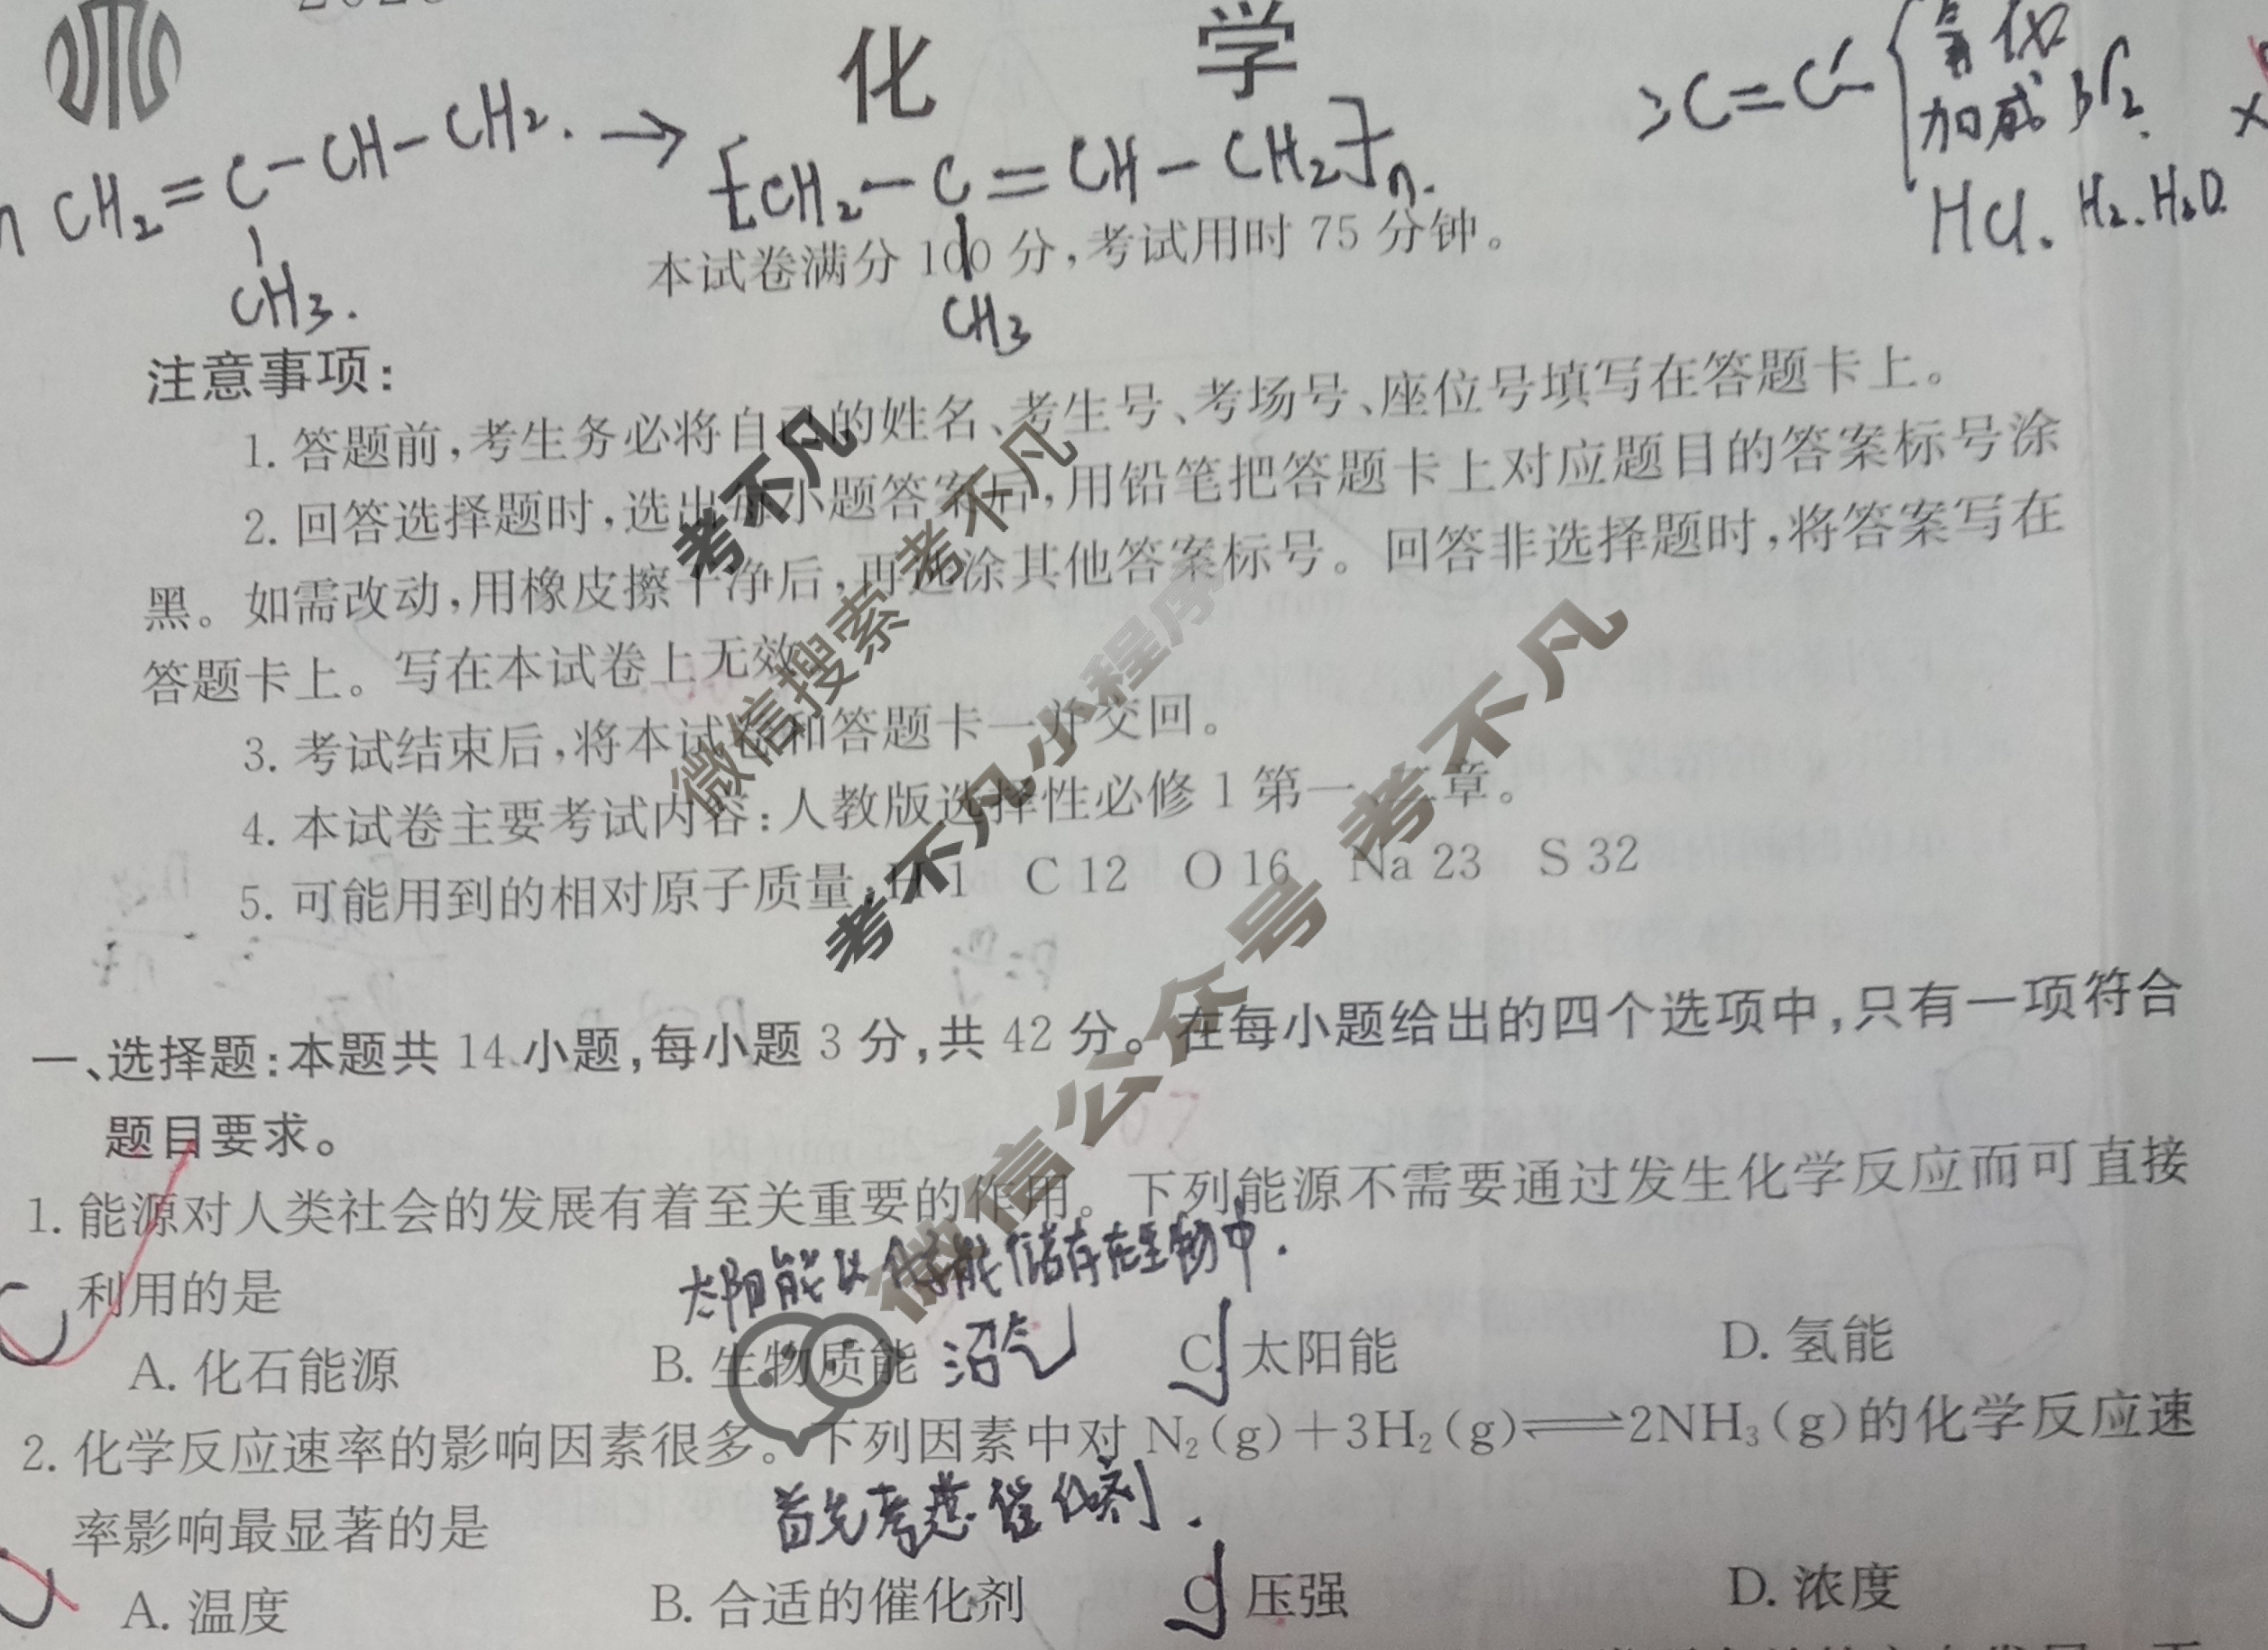 化 学
n CH₂=C-CH-CH₂. → [CH₂-C=CH-CH₂]n.
CH₃.
CH₃
>C=C<
氧化
加成 Br₂.
HCl. H₂. H₂O.
本试卷满分 100 分,考试用时 75 分钟。
注意事项:
1. 答题前,考生务必将自己的姓名、考生号、考场号、座位号填写在答题卡上。
2. 回答选择题时,选出每小题答案后,用铅笔把答题卡上对应题目的答案标号涂
黑。如需改动,用橡皮擦干净后,再选涂其他答案标号。回答非选择题时,将答案写在
答题卡上。写在本试卷上无效。
3. 考试结束后,将本试卷和答题卡一并交回。
4. 本试卷主要考试内容:人教版选择性必修 1 第一、二章。
5. 可能用到的相对原子质量:H 1 C 12 O 16 Na 23 S 32
考不凡
微信搜索 考不凡
考不凡小程序
微信公众号 考不凡
一、选择题:本题共 14 小题,每小题 3 分,共 42 分。在每小题给出的四个选项中,只有一项符合
题目要求。
1. 能源对人类社会的发展有着至关重要的作用。下列能源不需要通过发生化学反应而可直接
利用的是
太阳能以化学能储存在生物中.
C
A. 化石能源 B. 生物质能 沼气 C. 太阳能 D. 氢能
2. 化学反应速率的影响因素很多。下列因素中对 N₂(g)+3H₂(g)⇌2NH₃(g)的化学反应速
率影响最显著的是
首先考虑催化剂.
A. 温度 B. 合适的催化剂 C. 压强 D. 浓度